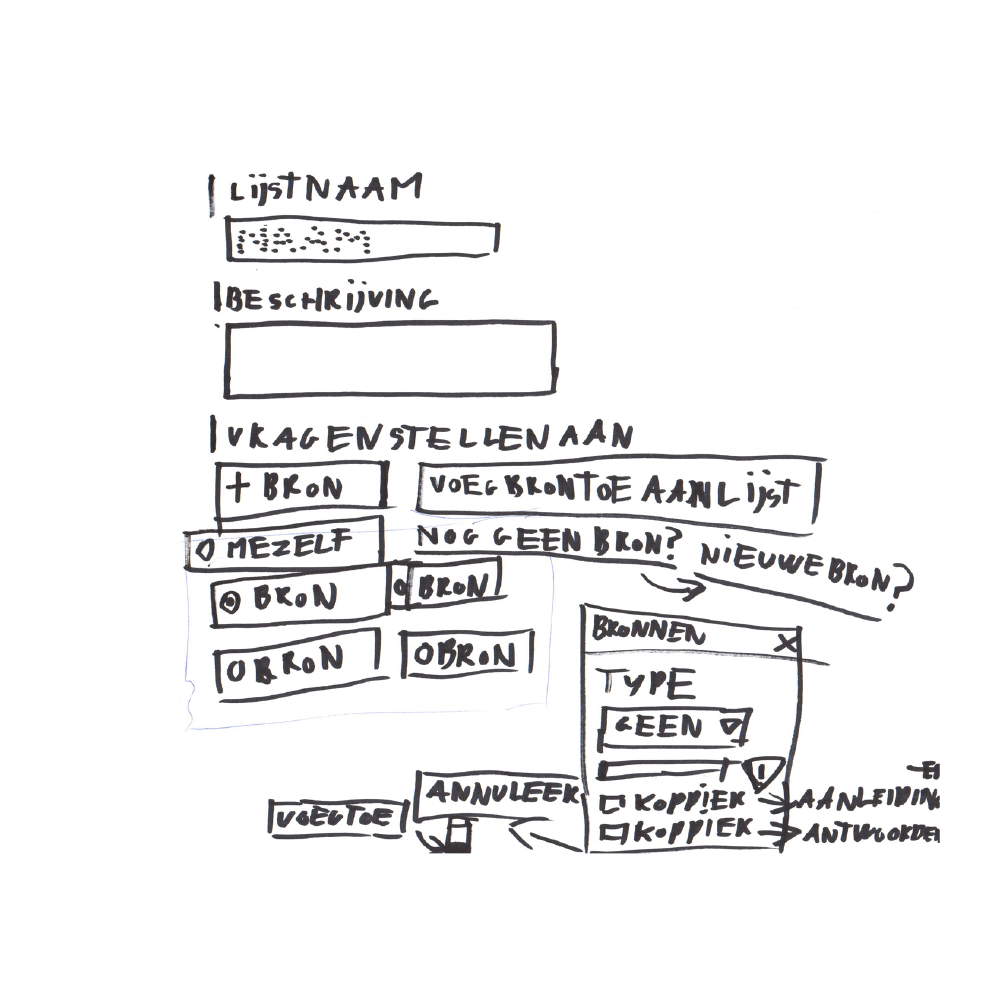 LijST NAAM
NAAM
BESCHRijVING
VRAGEN STELLEN AAN
+ BRON
VOEG BRON TOE AAN LijST
O MEZELF
NOG GEEN BRON?
NiEUWE BRON?
BRON
BRON
BRONNEN X
O BRON
O BRON
TYPE
GEEN
!
KOPPiEK
AANLEIDING
KOPPIEK
ANTWOORDE
ANNULEEK
VOEG TOE